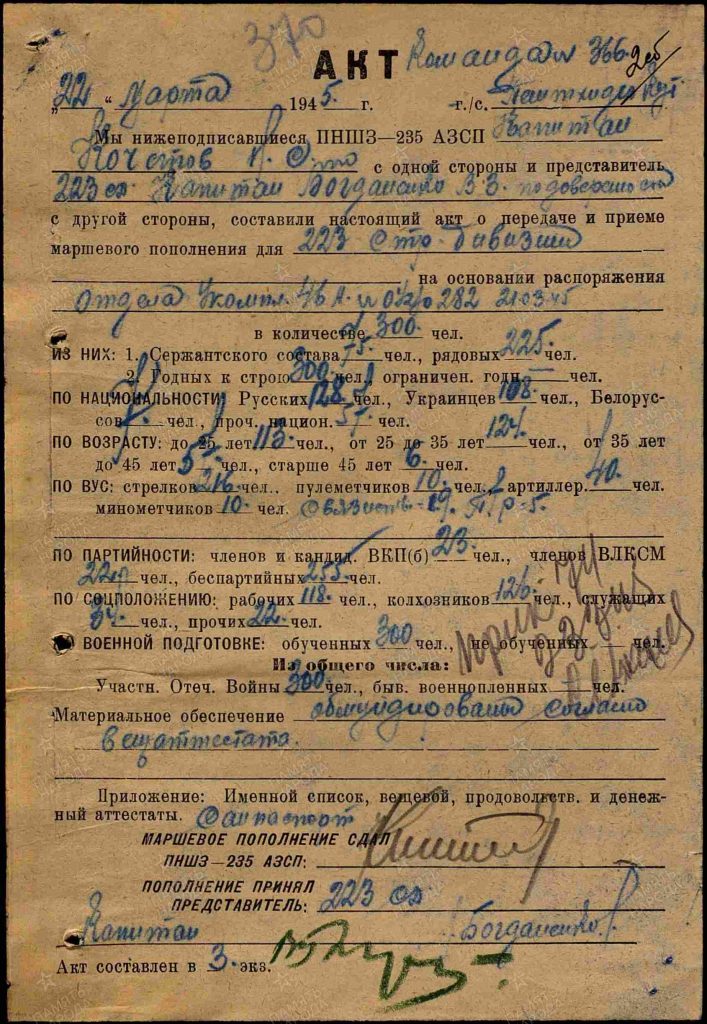 370
АКТ Команда № 366
"22" Марта 1945 г. г./с.
Мы нижеподписавшиеся ПНШЗ—235 АЗСП Капитан
с одной стороны и представитель
223 сд Капитан Богданенко В.З. по доверенности
с другой стороны, составили настоящий акт о передаче и приеме
маршевого пополнения для 223 Стр. дивизии
на основании распоряжения
Отдела Укомпл. 46 А. 282 21.03.45
в количестве 300 чел.
ИЗ НИХ: 1. Сержантского состава 75 чел., рядовых 225 чел.
2. Годных к строю 300 чел., ограничен. годн. чел.
ПО НАЦИОНАЛЬНОСТИ: Русских 128 чел., Украинцев 108 чел., Белорус-
сов чел., проч. национ. 57 чел.
ПО ВОЗРАСТУ: до 25 лет 113 чел., от 25 до 35 лет 124 чел., от 35 лет
до 45 лет 57 чел., старше 45 лет 6 чел.
ПО ВУС: стрелков 216 чел., пулеметчиков 10 чел., артиллер. 40 чел.
минометчиков 10 чел. Связистов - 19. - 5.
ПО ПАРТИЙНОСТИ: членов и кандид. ВКП(б) 23 чел., членов ВЛКСМ
22 чел., беспартийных 255 чел.
ПО СОЦПОЛОЖЕНИЮ: рабочих 118 чел., колхозников 126 чел., служащих
34 чел., прочих 22 чел.
ПО ВОЕННОЙ ПОДГОТОВКЕ: обученных 300 чел., не обученных чел.
Из общего числа:
Участн. Отеч. Войны 300 чел., быв. военнопленных чел.
Материальное обеспечение обмундированы согласно
вещаттестата.
Приложение: Именной список, вещевой, продовольств. и денеж-
ный аттестаты.
МАРШЕВОЕ ПОПОЛНЕНИЕ СДАЛ
ПНШЗ—235 АЗСП:
ПОПОЛНЕНИЕ ПРИНЯЛ
ПРЕДСТАВИТЕЛЬ: 223 сд
Капитан Богданенко
Акт составлен в 3 экз.